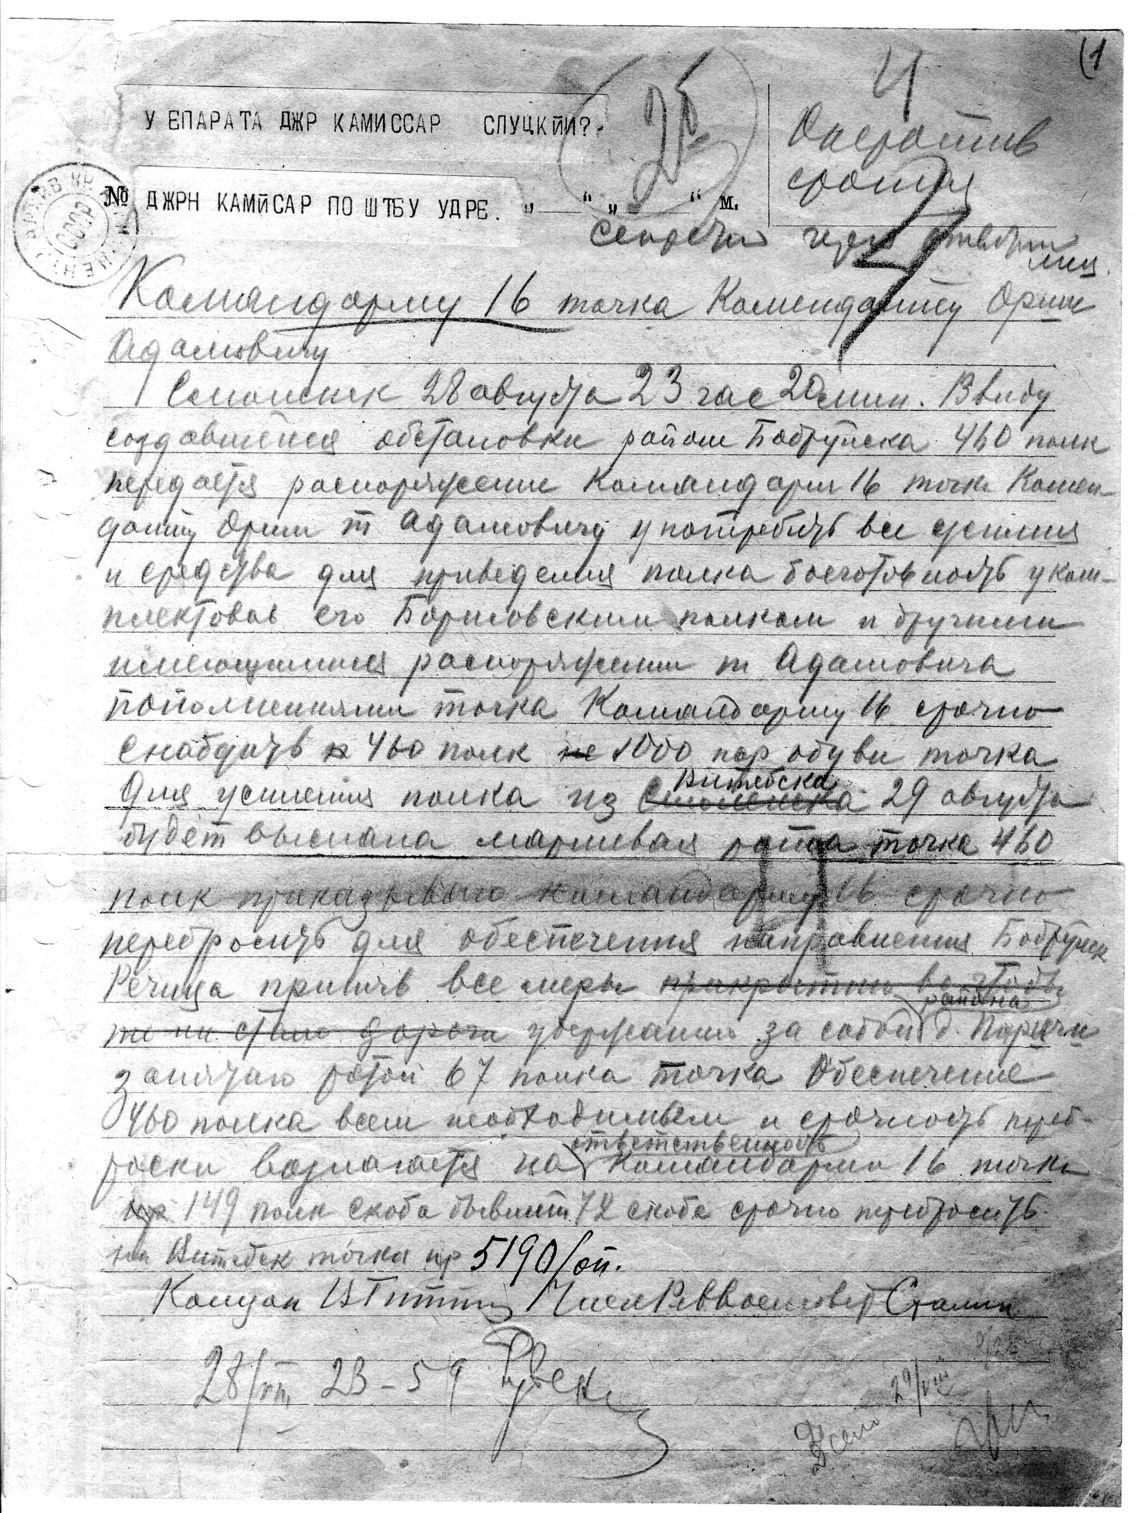 (1
У ЕПАРАТА ДЖР КАМИССАР СЛУЦКЙИ?-
25
Оператив
срочная
№ ДЖРН КАМЙСАР ПО ШТБУ УДРЕ. „ “ „ “ м.
АРХИВ КР
СССР
секретно через
лиц.
Командарму 16 точка Коменданту Орши
Адамовичу
Смоленск 28 августа 23 час 20 мин. Ввиду
создавшейся обстановки район Бобруйска 460 полк
передается распоряжение Командарм 16 точка Комен-
данту Орши т Адамовичу употребить все усилия
и средства для приведения полка боеготовность уком-
плектовав его Борисовским полком и другими
имеющимися распоряжении т Адамовича
пополнениями точка Командарму 16 срочно
снабдить 460 полк 1000 пар обуви точка
Для усиления полка из Смоленска Витебска 29 августа
будет выслана маршевая рота точка 460
полк приказываю командарму 16 срочно
перебросить для обеспечения направления Бобруйск
Речица приняв все меры
дорога удержания за собой района д. Паричи
занятаго ротой 67 полка точка Обеспечение
460 полка всем необходимым и срочность переб-
роски возлагается на ответственность Командарма 16 точка
149 полк скоба бывший 72 скоба срочно перебросить
на Витебск точка нр 5190/оп.
Комзап Член Реввоенсовета Сталин
28/VIII 23-59
29/VIII